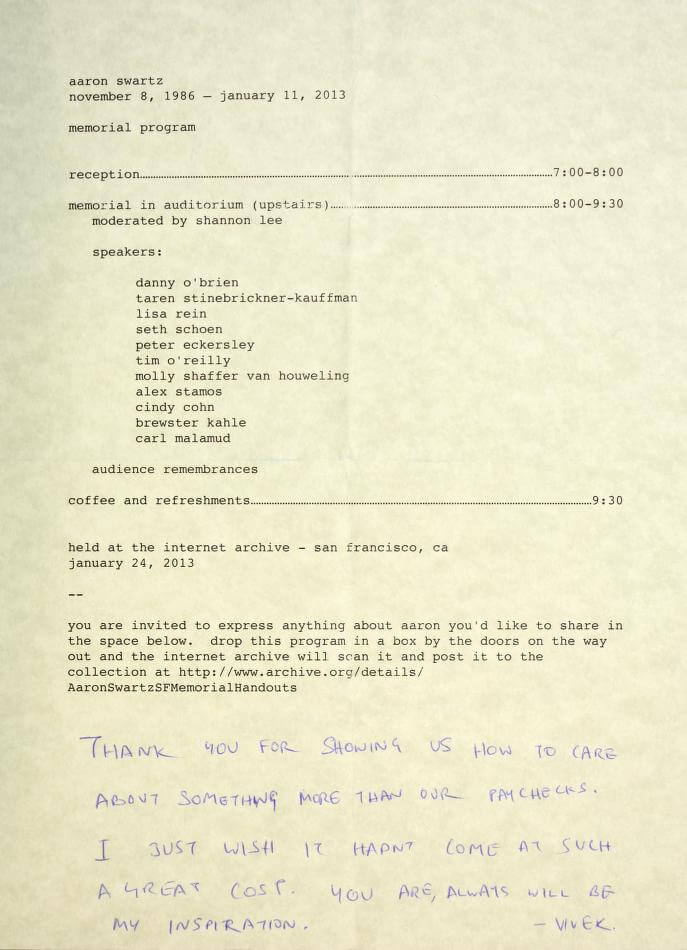 aaron swartz
november 8, 1986 — january 11, 2013
memorial program
reception……………………………………………………………………………………………7:00-8:00
memorial in auditorium (upstairs)…………………………………………………8:00-9:30
moderated by shannon lee
speakers:
danny o'brien
taren stinebrickner-kauffman
lisa rein
seth schoen
peter eckersley
tim o'reilly
molly shaffer van houweling
alex stamos
cindy cohn
brewster kahle
carl malamud
audience remembrances
coffee and refreshments……………………………………………………………………………9:30
held at the internet archive - san francisco, ca
january 24, 2013
--
you are invited to express anything about aaron you'd like to share in
the space below.  drop this program in a box by the doors on the way
out and the internet archive will scan it and post it to the
collection at http://www.archive.org/details/
AaronSwartzSFMemorialHandouts
THANK YOU FOR SHOWING US HOW TO CARE
ABOUT SOMETHING MORE THAN OUR PAYCHECKS.
I JUST WISH IT HADN'T COME AT SUCH
A GREAT COST. YOU ARE, ALWAYS WILL BE
MY INSPIRATION. - VIVEK.